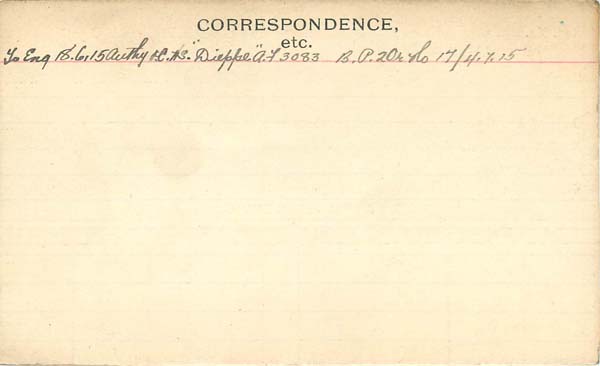 CORRESPONDENCE,
etc.
To Eng 18.6.15 Authy H.S. "Dieppe" A.F 3083 B.P. 2 Or No 17/4.7.15